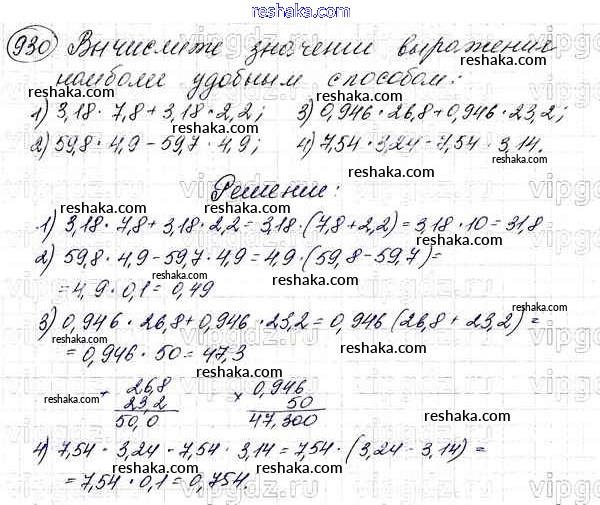 reshaka.com
930 Вычислите значении выражение
наиболи удобным способом:
1) 3,18 · 7,8 + 3,18 · 2,2; 3) 0,946 · 26,8 + 0,946 · 23,2;
2) 59,8 · 4,9 − 59,7 · 4,9; 4) 7,54 · 3,24 − 7,54 · 3,14.
Решении:
1) 3,18 · 7,8 + 3,18 · 2,2 = 3,18 · (7,8 + 2,2) = 3,18 · 10 = 31,8
2) 59,8 · 4,9 − 59,7 · 4,9 = 4,9 · (59,8 − 59,7) =
= 4,9 · 0,1 = 0,49
3) 0,946 · 26,8 + 0,946 · 23,2 = 0,946 (26,8 + 23,2) =
= 0,946 · 50 = 47,3
+ 26,8 × 0,946
23,2 50
50,0 47,300
4) 7,54 · 3,24 - 7,54 · 3,14 = 7,54 · (3,24 − 3,14) =
= 7,54 · 0,1 = 0,754.